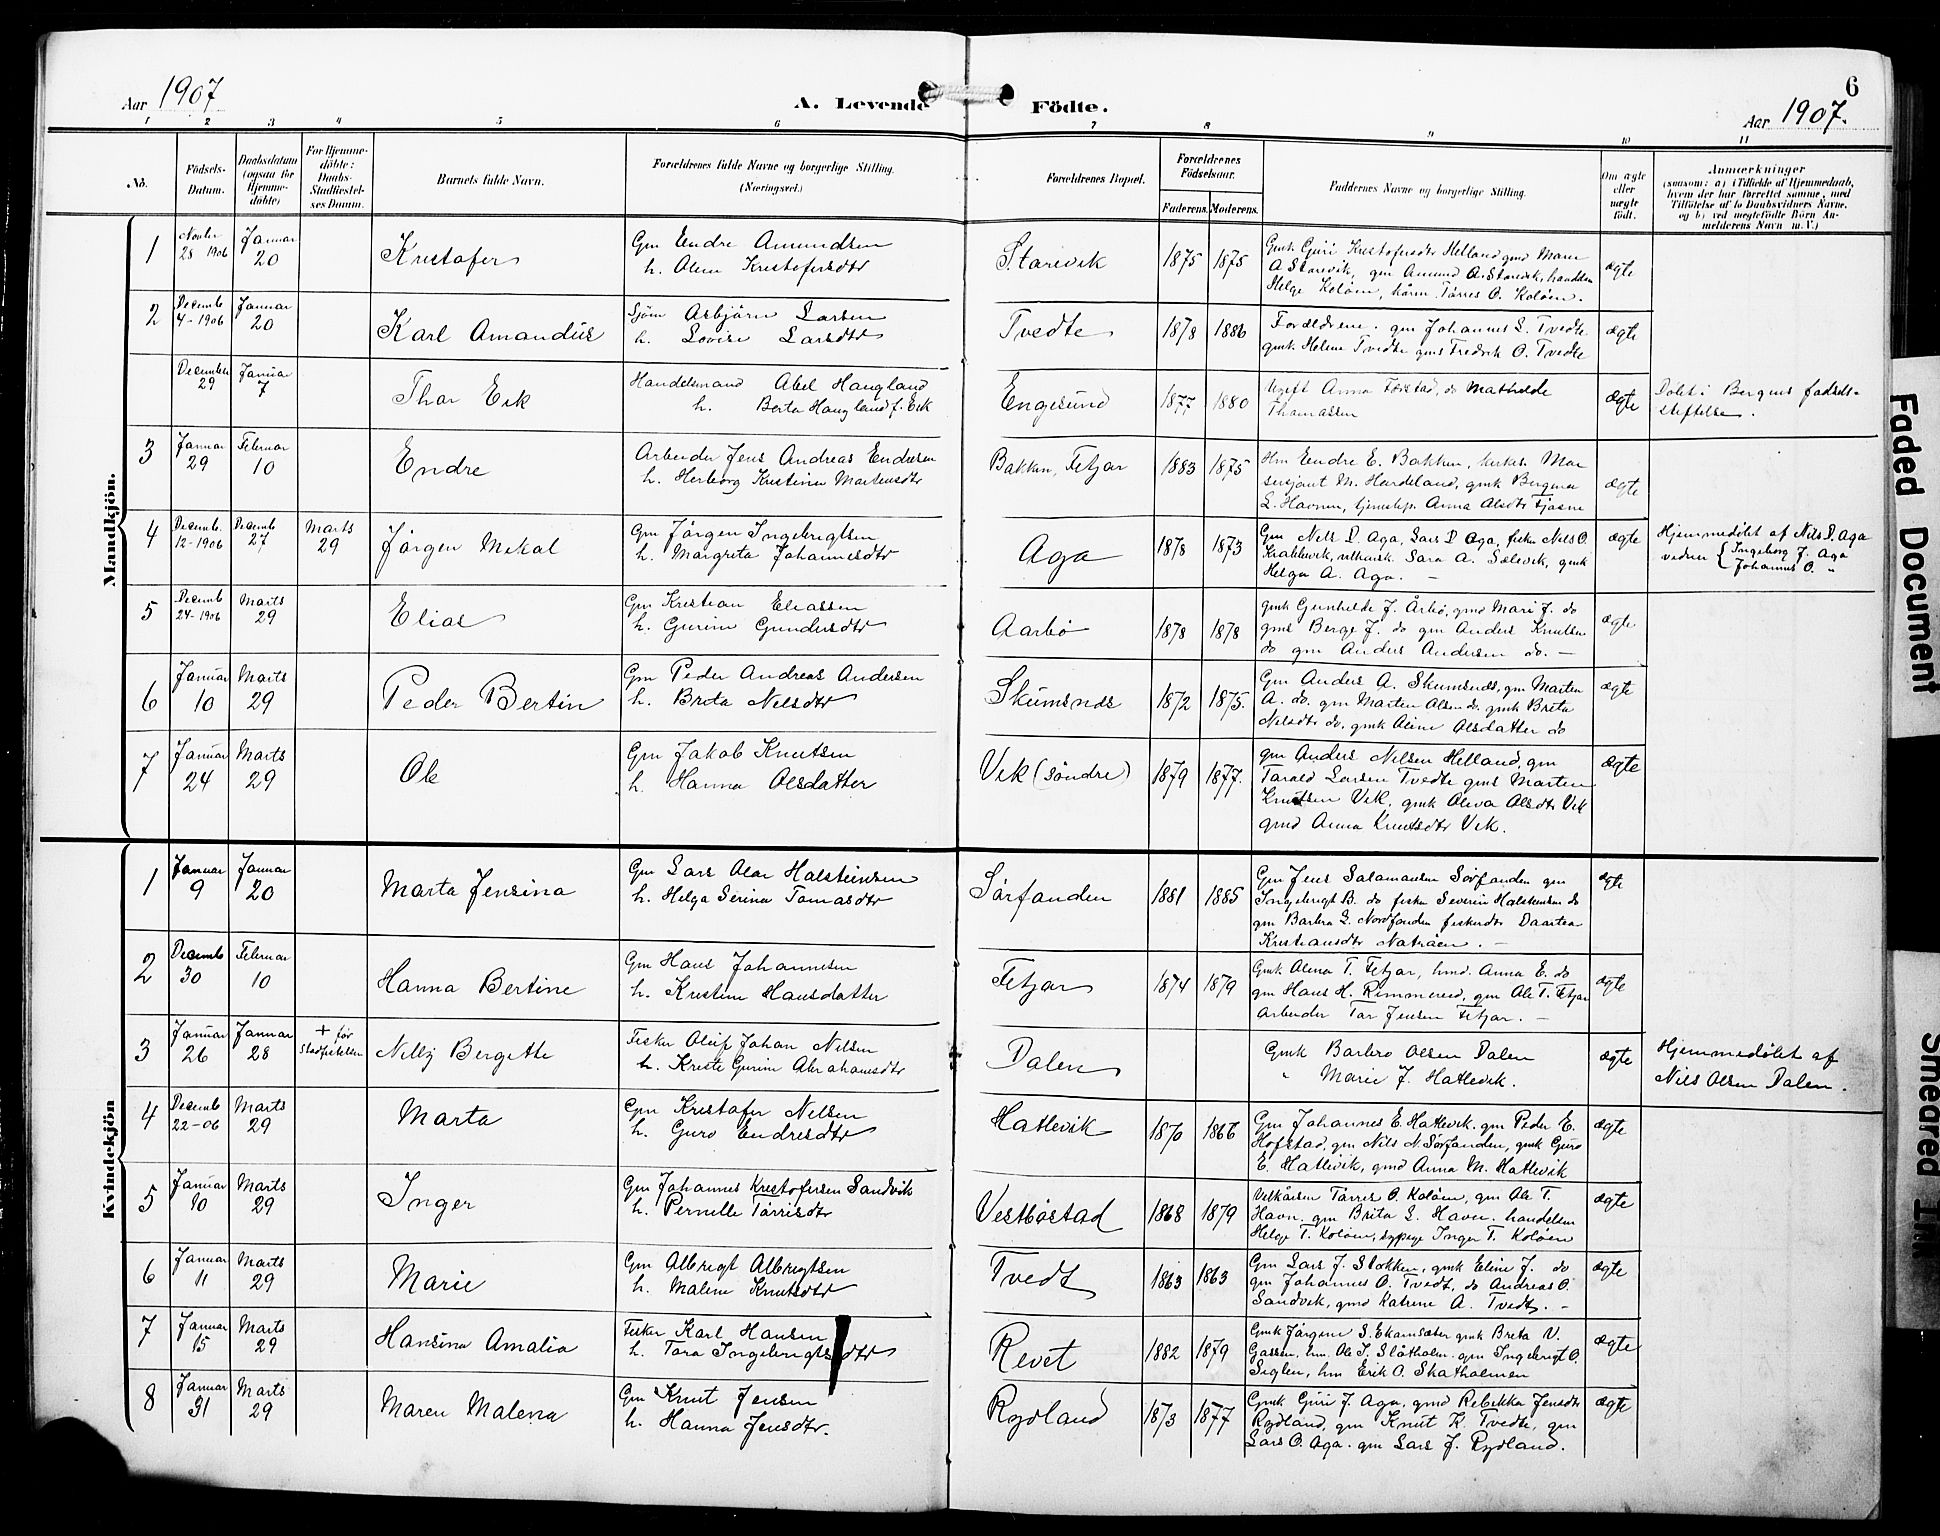 Aar 1907
A. Levende Födte.
6
Aar 1907.
1 2 3 4 5 6 7 8 9 10 11
No.
Födsels-
Datum.
Daabsdatum
(ogsaa for
Hjemme-
döbte)
For Hjemme-
döbte:
Daabs-
Stadfæstel-
ses Datum.
Barnets fulde Navn.
Forældrenes fulde Navne og borgerlige Stilling.
(Næringsvei.)
Forældrenes Bopæl.
Forældrenes
Födselsaar.
Faderens. Moderens.
Faddernes Navne og borgerlige Stilling.
Om ægte
eller
uægte
født.
Anmærkninger
(saasom: a) i Tilfælde af Hjemmedaab,
hvem der har forrettet samme, med
Tilföielse af to Daabsvidners Navne.
og b) ved uægtefödte Börn An-
melderens Navn m. V.)
Mandkjön.
1
Novbr
28 1906
Januar
20
Kristofer
Gm Endre Amundsen
h. Oline Kristofersdtr
Starevik
1875 1875
Gmk Guri Kristofersdtr Helland gmd Maren
A Starevik, gm Amund A. Starevik, handelsm
Helge Koløen, kårm. Tørres O. Koløen.
ægte
2
Decemb
4-1906
Januar
20
Karl Amandus
Sjøm Asbjørn Larsen
h. Lovise Larsdtr
Tvedte
1878 1886
Forældrene. gm Johannes L. Tvedte
gmk Helene Tvedte gms Fredrik O. Tvedte
ægte
December
29
Januar
7
Thor Eik
Handelsmand Abel Haugland
h. Berta Haugland f. Eik
Engesund
1877 1880
Ugift Anna Færstad, do Mathilde
Thomassen
ægte
Døbt i Bergens fødsels-
stiftelse.
3
Januar
29
Februar
10
Endre
Arbeider Jens Andreas Endresen
h. Herborg Kristina Martensdtr
Bakken, Fitjar
1883 1875
Hm Endre E. Bakken, kirkes. Mar
serjant M. Hardeland, gmk Bergina
L. Havnen, tjenestep. Anna Olsdtr Fjøsne
ægte
4
Decemb.
12-1906
Decemb
27
Marts
29
Jørgen Mikal
Gm Jørgen Ingebrigtsen
h. Margreta Johannesdtr
Aga
1878 1873
Gm Nils D. Aga, Lars D Aga, fisker Nils O.
Krablevik, Sara A. Sælevik, gmk
Helga A. Aga. –
ægte
Hjemmedøbt af Nils D. Aga
vidner { Ingeborg J. Aga
Johannes O. "
5
Decemb
24-1906
Marts
29
Elias
Gm Kristian Eliassen
h. Gurine Gundersdtr
Aarbø
1878 1878
gmk Gunhilde J. Årbø, gmd Mari J. do
gms Berge J. do gm Anders Knutsen
do gm Anders Andersen do. –
ægte
6
Januar
10
Marts
29
Peder Bertin
Gm Peder Andreas Andersen
h. Brita Nilsdtr
Skumsnes
1872 1875.
Gm Anders A. Skumsnes, gm Marten
A. do. gm Marten Olsen do. gmk Brita
Nilsdtr do. gmk Oline Olsdatter do
ægte
7
Januar
24
Marts
29
Ole
Gm Jakob Knutsen
h. Hanna Olsdatter
Vik (søndre)
1879 1877.
gm Anders Nilsen Helland, gm
Tarald Larsen Tvedte gms Marten
Knutsen Vik, gmk Oliva Olsdtr Vik
gmd Anna Knutsdtr Vik.
ægte
Kvindekjön
1
Januar
9
Januar
20
Marta Jensina
Gm Lars Olai Halsteinsen
h. Helga Serina Tomasdtr
Sørfonden
1881 1885
Gm Jens Salamonsen Sørfonden gm
Ingebrigt B. do fisker Severin Halstensen do
gm Barbra L. Nordfonden fiskerdtr Daartea
Kristiansdtr. –
ægte
2
Decemb
30
Februar
10
Hanna Bertine
Gm Hans Johannesen
h. Kristine Hansdatter
Fitjar
1874 1879
Gmk Olena T. Fitjar, hmd. Anna E. do
gm Hans H. Rimmereid, gm Ole T. Fitjar
Arbeider Tor Jensen Fitjar. –
ægte
3
Januar
26
Januar
28
+ før
Stadfæstelsen
Nelly Bergitte
Fisker Oluf Johan Nilsen
h. Kriste Gurine Abrahamsdtr
Dalen
Gmk Barbro Olsen Dalen
" Marie J. Hatlevik.
ægte
Hjemmedøbt af
Nils Olsen Dalen.
4
Decemb
22-06
Marts
29
Marta
Gm Kristofer Nilsen
h. Guro Endresdtr
Hatlevik
1870 1866
Gm Johannes E. Hatlevik. gm Peder E.
Hofstad, gm Nils N. Sørfonden, gmk Guro
E. Hatlevik, gmd Anna M. Hatlevik
ægte
5
Januar
10
Marts
29
Inger
Gm Johannes Kristofersen Sandvik
h. Pernille Tørrisdtr
Vestbøstad
1868 1879
Tørres O. Koløen, gm Ole T.
Havn. gm Brita L. Havn. handelsm
Helge T. Koløen, sypige Inger T. Koløen
ægte
6
Januar
11
Marts
29
Marie
Gm Albrigt Albrigtsen
h. Malene Knutsdtr
Tvedt
1863 1863
Gm Lars J. Stokken, gmk Eline J. do
gm Johannes O. Tvedt, do Andreas O.
Sandvik, gmd Katrine A. Tvedt. –
ægte
7
Januar
15
Marts
29
Hansina Amalia
Fisker Karl Hansen
h. Tora Ingebrigtsdtr
Revet
1882 1879
Gmk Jørgine S. Ekornsæter gmk Brita V.
Gassen, hm. Ole I. Slåtholm. gm Ingebrigt O.
Siglen, hm Erik O. Skatholmen
ægte
8
Januar
31
Marts
29
Maren Malena
Gm Knut Jensen
h. Hanna Jensdtr.
Rydland
1873 1877
Gmk Guri J. Aga, gmd Rebekka Jensdtr
Rydland, gm Knut K. Tvedte, gm
Lars O. Aga. gm Lars J. Rydland.
ægte
Faded Document
Smeared Ink